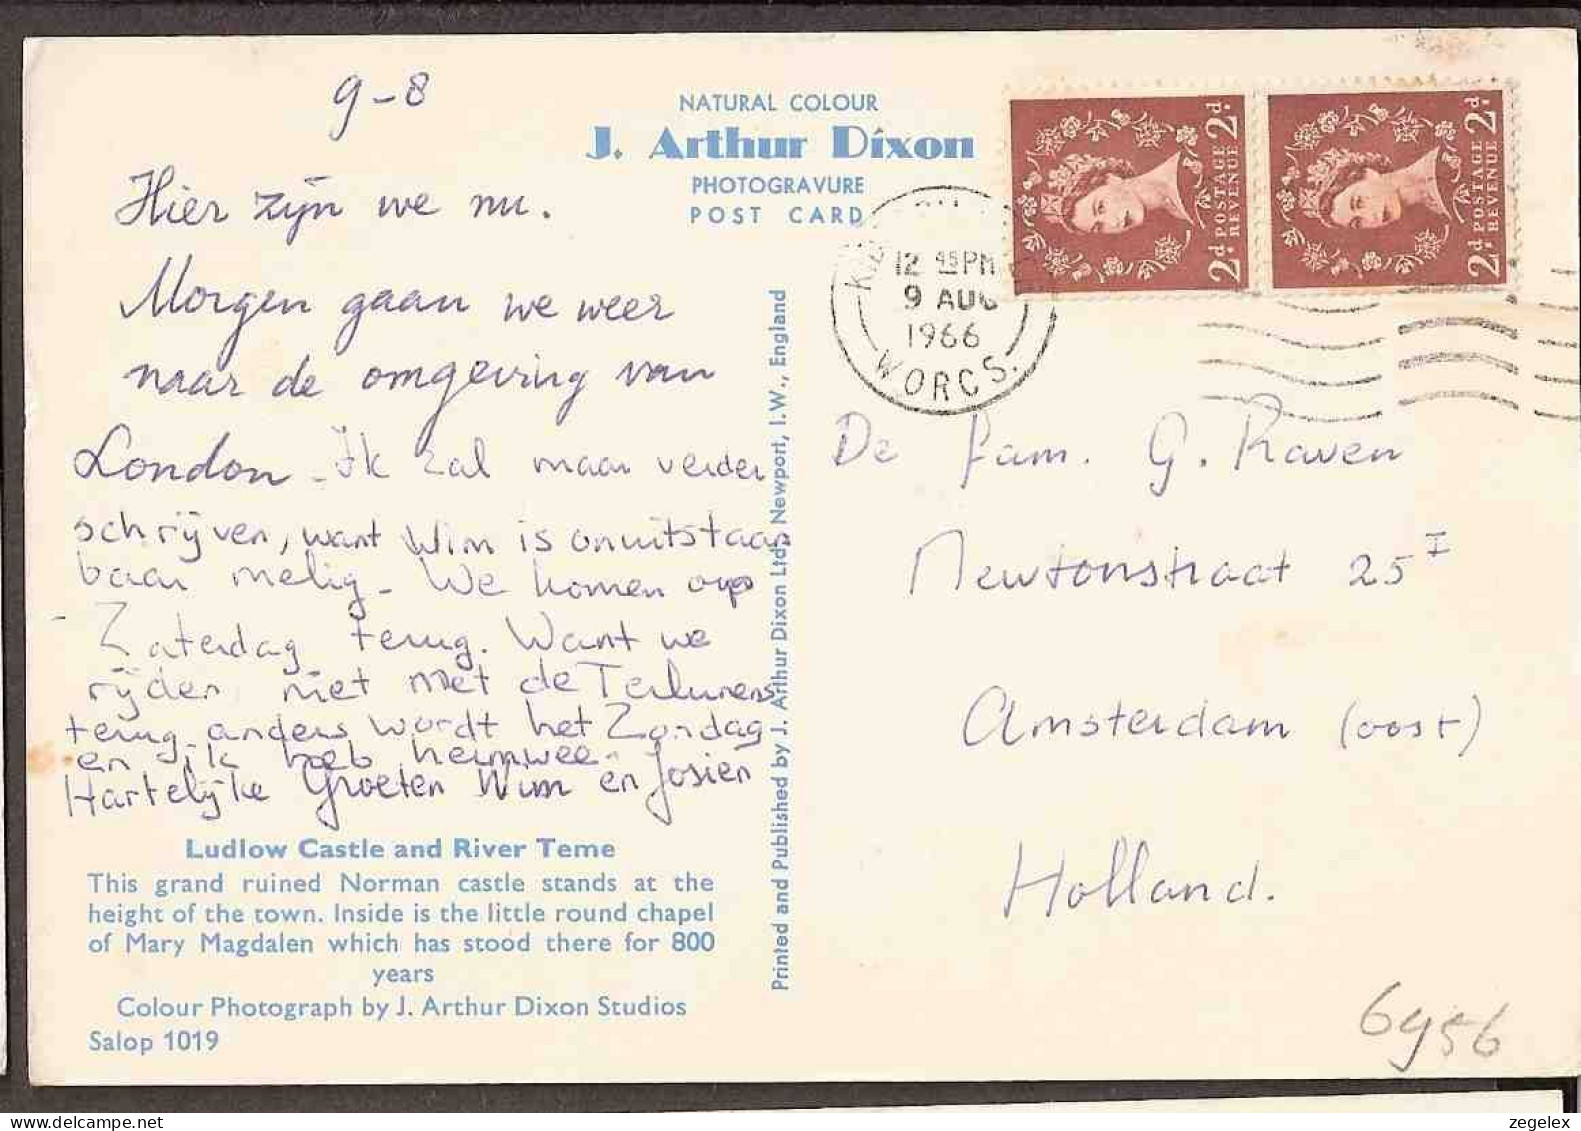 9-8
Hier zijn we nu.
Morgen gaan we weer
naar de omgeving van
London - Ik zal maar verder
schrijven, want Wim is onuitstaan
baar melig - We komen op
Zaterdag terug. Want we
rijden niet met de
terug. anders wordt het Zondag
en ik heb heimwee.
Hartelijke Groeten Wim en Josien
Ludlow Castle and River Teme
This grand ruined Norman castle stands at the
height of the town. Inside is the little round chapel
of Mary Magdalen which has stood there for 800
years
Colour Photograph by J. Arthur Dixon Studios
Salop 1019
NATURAL COLOUR
J. Arthur Dixon
PHOTOGRAVURE
POST CARD
Printed and Published by J. Arthur Dixon Ltd., Newport, I.W., England
12 45 PM
9 AUG
1966
WORCS.
2d. POSTAGE REVENUE 2d.
2d. POSTAGE REVENUE 2d.
De fam. G. Raven
Newtonstraat 25 I
Amsterdam (oost)
Holland.
6956
https://www.delcampe.net
zegelex